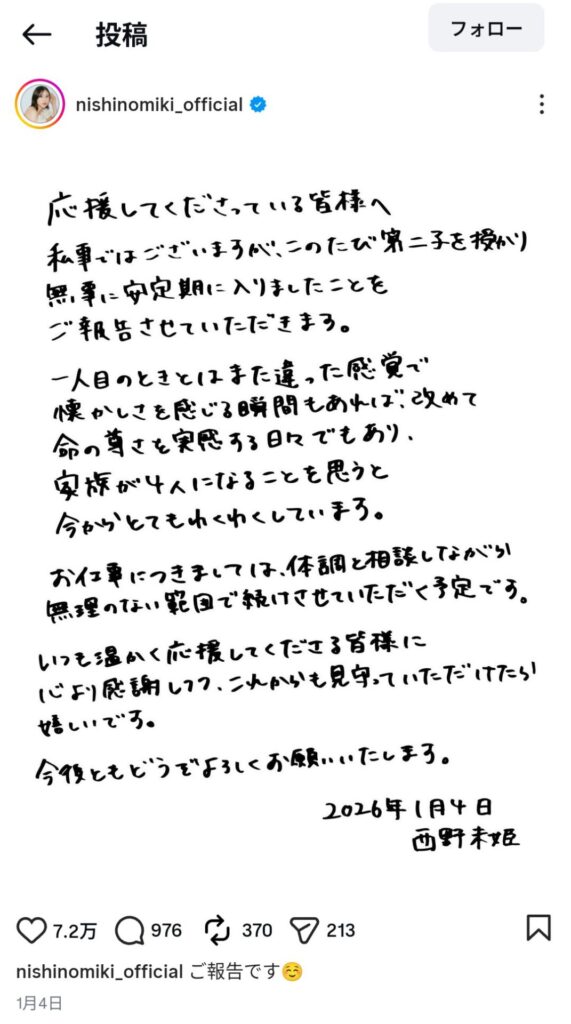 投稿
フォロー
nishinomiki_official
応援してくださっている皆様へ
私事ではございますが、このたび第二子を授かり
無事に安定期に入りましたことを
ご報告させていただきます。
一人目のときとはまた違った感覚で
懐かしさを感じる瞬間もあれば、改めて
命の尊さを実感する日々でもあり、
家族が4人になることを思うと
今からとてもわくわくしています。
お仕事につきましては、体調と相談しながら
無理のない範囲で続けさせていただく予定です。
いつも温かく応援してくださる皆様に
心より感謝しつつ、これからも見守っていただけたら
嬉しいです。
今後ともどうぞよろしくお願いいたします。
2026年1月4日
西野未姫
7.2万 976 370 213
nishinomiki_official ご報告です☺️
1月4日